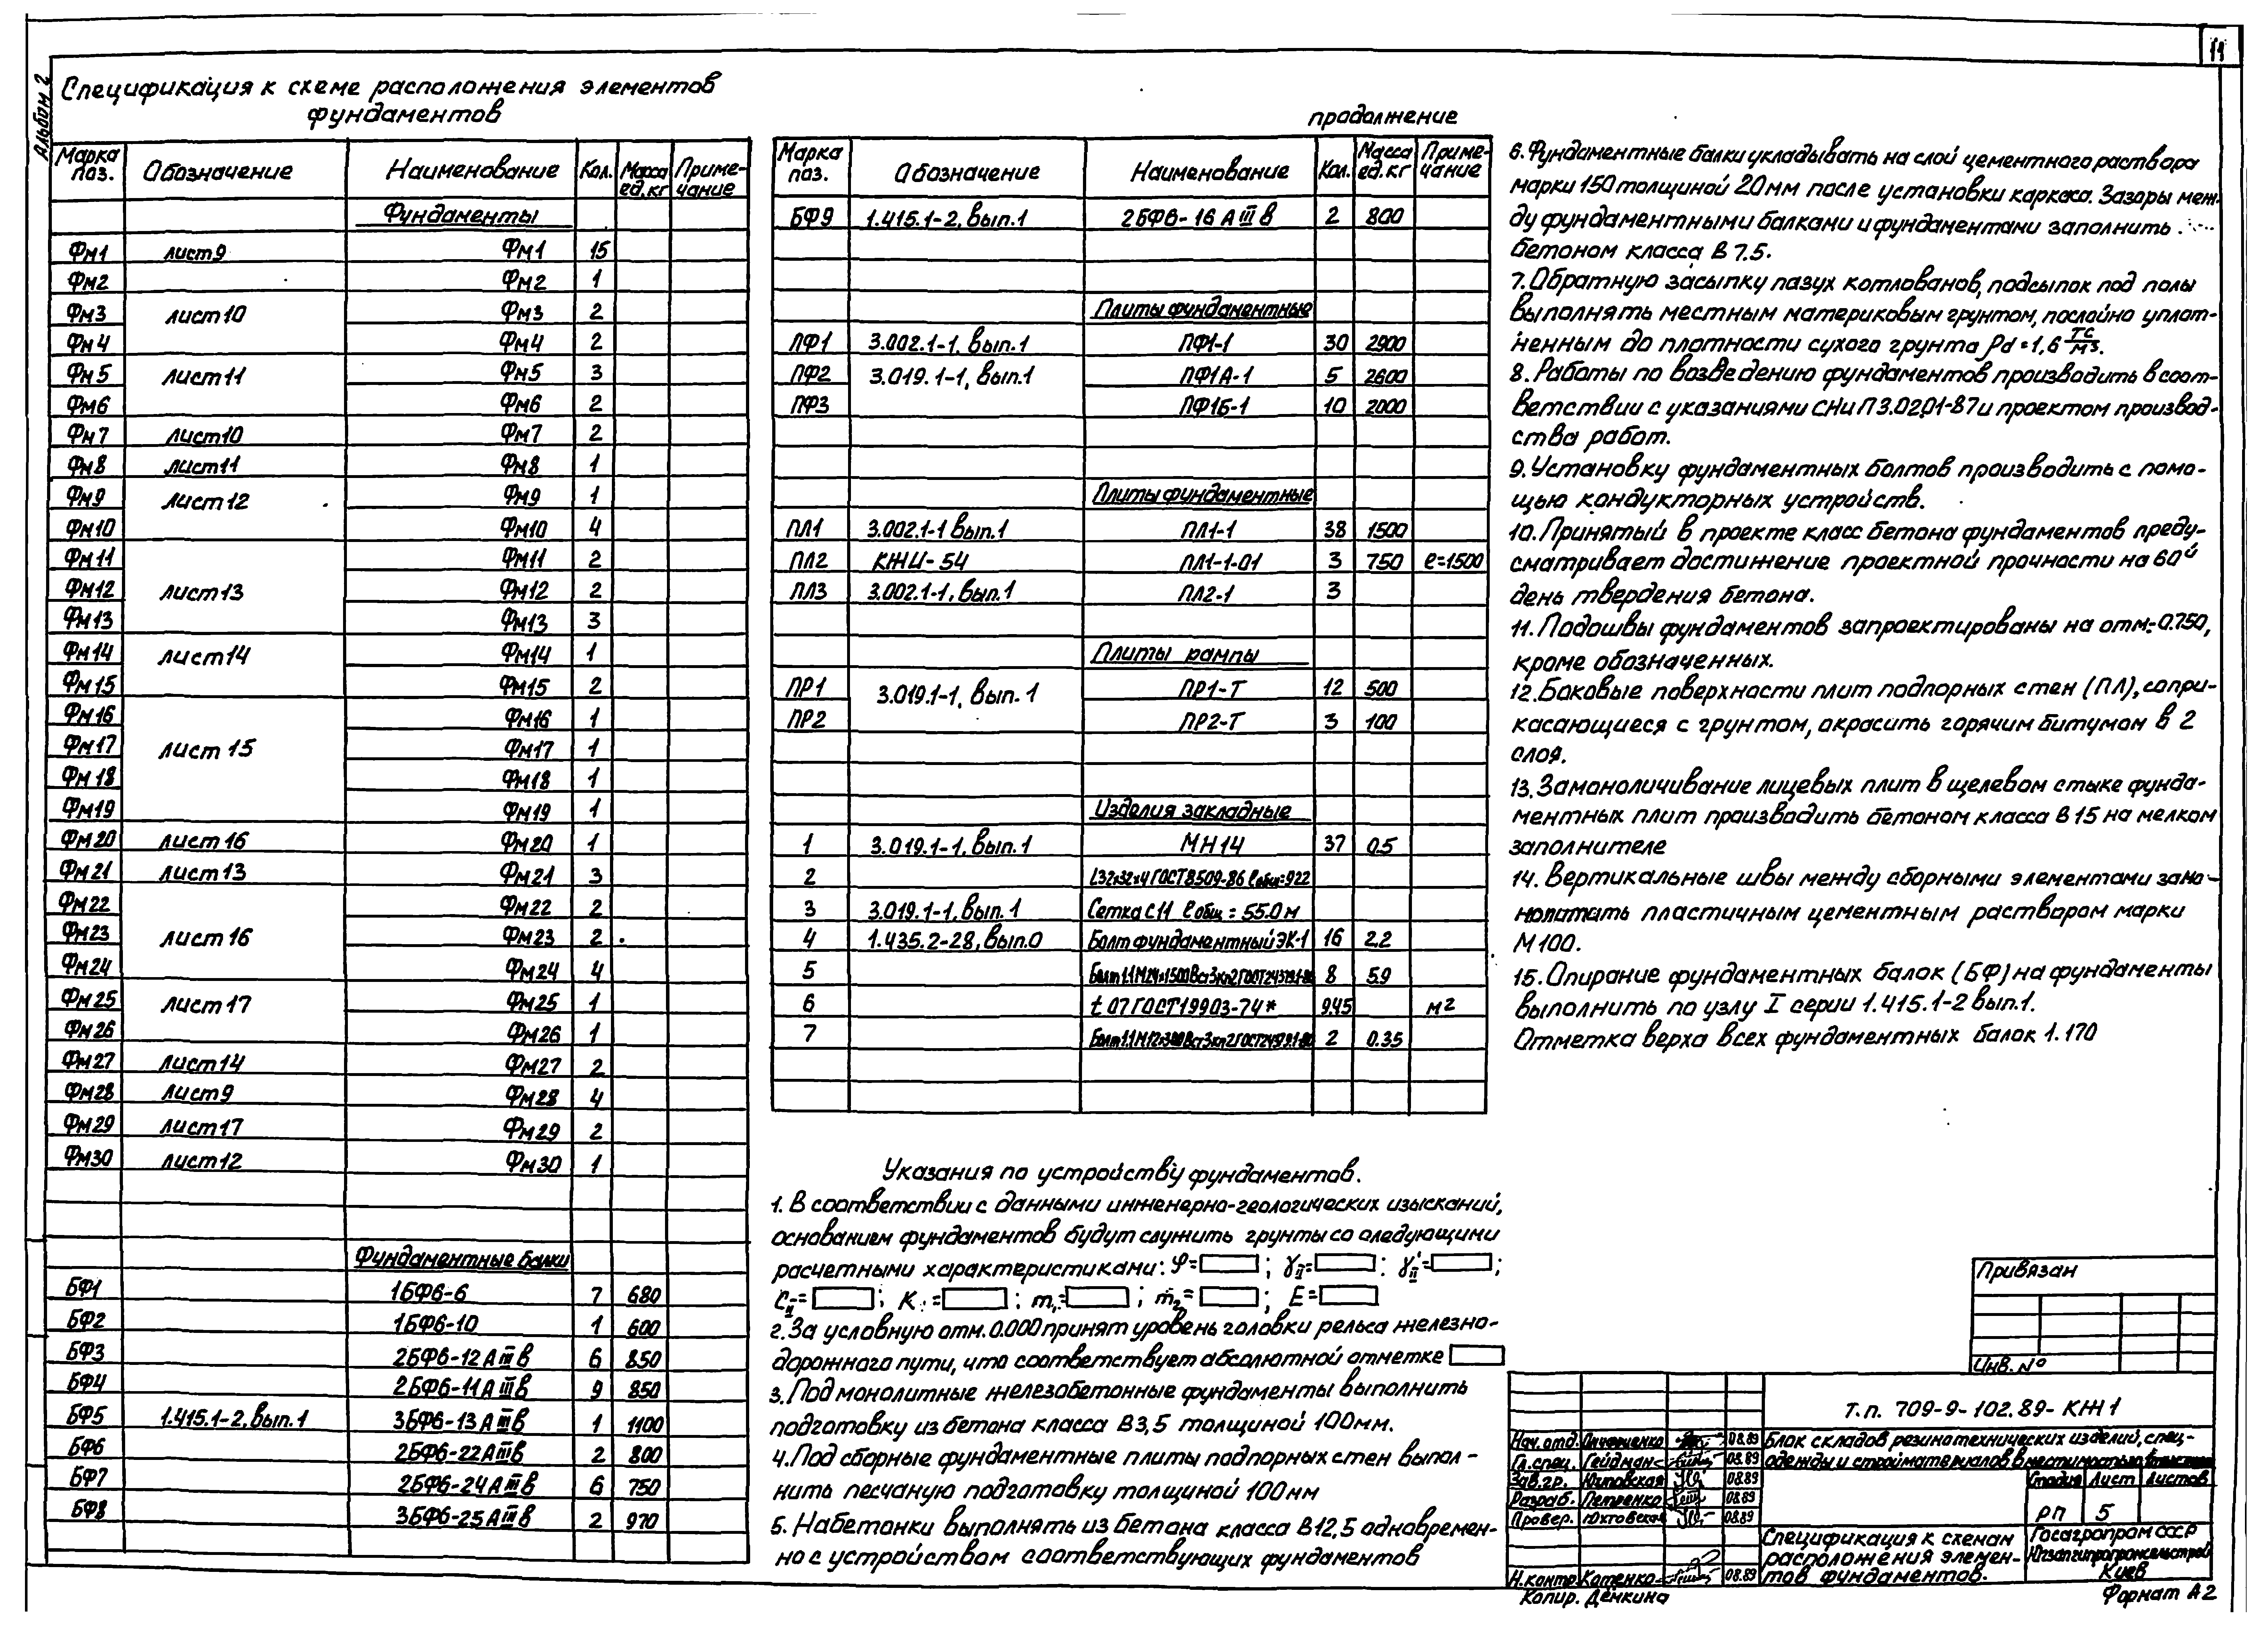 11
Альбом 2
Спецификация к схеме расположения элементов
фундаментов
Марка поз. Обозначение Наименование Кол. Масса ед.кг Приме-чание
Фундаменты
Фм1 лист9 Фм1 15
Фм2 Фм2 1
Фм3 лист10 Фм3 2
Фм4 Фм4 2
Фм5 лист11 Фм5 3
Фм6 Фм6 2
Фм7 лист10 Фм7 2
Фм8 лист11 Фм8 1
Фм9 лист12 Фм9 1
Фм10 Фм10 4
Фм11 Фм11 2
Фм12 лист13 Фм12 2
Фм13 Фм13 3
Фм14 лист14 Фм14 1
Фм15 Фм15 2
Фм16 Фм16 1
Фм17 лист 15 Фм17 1
Фм18 Фм18 1
Фм19 Фм19 1
Фм20 лист16 Фм20 1
Фм21 лист13 Фм21 3
Фм22 Фм22 2
Фм23 лист16 Фм23 2
Фм24 Фм24 4
Фм25 лист17 Фм25 1
Фм26 Фм26 1
Фм27 лист14 Фм27 2
Фм28 лист9 Фм28 4
Фм29 лист17 Фм29 2
Фм30 лист12 Фм30 1
Фундаментные балки
БФ1 1БФ6-6 7 680
БФ2 1БФ6-10 1 600
БФ3 2БФ6-12АIIIв 6 850
БФ4 2БФ6-11АIIIв 9 850
БФ5 1.415.1-2.вып.1 3БФ6-13АIIIв 1 1100
БФ6 2БФ6-22АIIIв 2 800
БФ7 2БФ6-24АIIIв 6 750
БФ8 3БФ6-25АIIIв 2 970
продолжение
Марка поз. Обозначение Наименование Кол. Масса ед.кг Приме-чание
БФ9 1.415.1-2.вып.1 2БФ6-16АIIIв 2 800
Плиты фундаментные
ПФ1 3.002.1-1.вып.1 ПФ1-1 30 2900
ПФ2 3.019.1-1, вып.1 ПФ1А-1 5 2600
ПФ3 ПФ1Б-1 10 2000
Плиты фундаментные
ПЛ1 3.002.1-1 вып.1 ПЛ1-1 38 1500
ПЛ2 КЖИ-54 ПЛ1-1-01 3 750 ℓ=1500
ПЛ3 3.002.1-1.вып.1 ПЛ2-1 3
Плиты рампы
ПР1 3.019.1-1, вып.1 ПР1-Т 12 500
ПР2 ПР2-Т 3 100
Изделия закладные
1 3.019.1-1.вып.1 МН14 37 0.5
2 L32х32х4 ГОСТ8509-86 ℓобщ=922
3 3.019.1-1.вып.1 Сетка С11 ℓобщ=55.0м
4 1.435.2-28,вып.0 Болт фундаментный ЭК-1 16 2.2
5 Болт1.1М24х1500ВСт3кп2ГОСТ24379.1-80 8 5.9
6 t 07 ГОСТ19903-74* 9.45 м2
7 Болт1.1М12х300ВСт3кп2ГОСТ24379.1-80 2 0.35
Указания по устройству фундаментов.
1. В соответствии с данными инженерно-геологических изысканий,
основанием фундаментов будут служить грунты со следующими
расчетными характеристиками: φ= ; γII= ; γ'II= ;
CII= ; К = ; m1= ; m2= ; E=
2. За условную отм. 0.000 принят уровень головки рельса железно-
дорожного пути, что соответствует абсолютной отметке
3. Под монолитные железобетонные фундаменты выполнить
подготовку из бетона класса В3,5 толщиной 100мм.
4. Под сборные фундаментные плиты подпорных стен выпол-
нить песчаную подготовку толщиной 100мм
5. Набетонки выполнять из бетона класса В12,5 одновремен-
но с устройством соответствующих фундаментов
6. Фундаментные балки укладывать на слой цементного раствора
марки 150 толщиной 20мм после установки каркаса. Зазоры меж-
ду фундаментными балками и фундаментами заполнить
бетоном класса В 7.5.
7. Обратную засыпку пазух котлованов, подсыпок под полы
выполнять местным материковым грунтом, послойно уплот-
ненным до плотности сухого грунта ρd=1,6 тс/м3.
8. Работы по возведению фундаментов производить в соот-
ветствии с указаниями СНиП 3.02.01-87 и проектом производ-
ства работ.
9. Установку фундаментных болтов производить с помо-
щью кондукторных устройств.
10. Принятый в проекте класс бетона фундаментов преду-
сматривает достижение проектной прочности на 60й
день твердения бетона.
11. Подошвы фундаментов запроектированы на отм.-0.750,
кроме обозначенных.
12. Боковые поверхности плит подпорных стен (ПЛ), сопри-
касающиеся с грунтом, окрасить горячим битумом в 2
слоя.
13. Замоноличивание лицевых плит в щелевом стыке фунда-
ментных плит производить бетоном класса В15 на мелком
заполнителе
14. Вертикальные швы между сборными элементами замо-
нолитить пластичным цементным раствором марки
М100.
15. Опирание фундаментных балок (БФ) на фундаменты
выполнить по узлу I серии 1.415.1-2 вып.1.
Отметка верха всех фундаментных балок 1.170
Привязан
Инв. №
Т.п. 709-9-102.89-КЖ1
Нач.отд. 08.89 Блок складов резинотехнических изделий, спец-
Гл.спец. Гейдман 08.89 одежды и стройматериалов вместимостью
Зав.гр. Юхтовская 08.89 Стадия Лист Листов
Разраб. Петренко 08.89 РП 5
Провер. Юхтовская 08.89
Спецификация к схемам
расположения элемен-
тов фундаментов.
Госагропром СССР
Киев
Н.контр. Котенко 08.89
Копир. Дёмкина
Формат А2